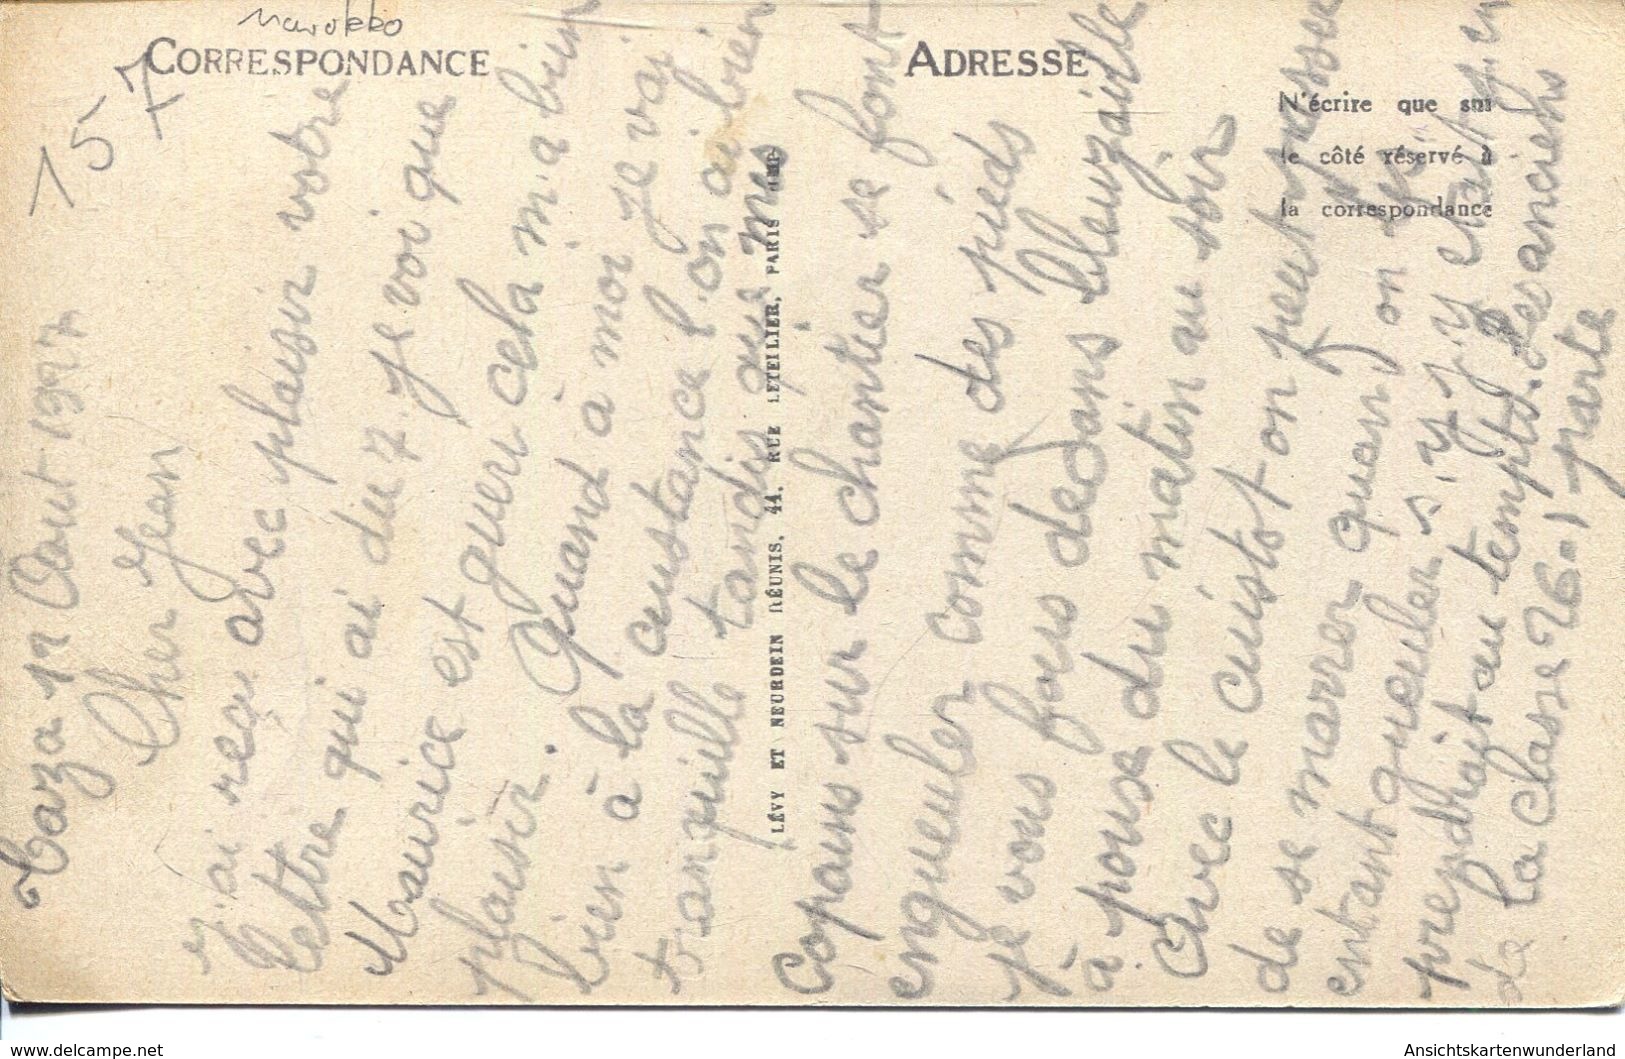 Marokko
157
CORRESPONDANCE
ADRESSE
N'écrire que sur
le côté réservé à
la correspondance
LÉVY ET NEURDEIN RÉUNIS, 44, RUE LETELLIER, PARIS IMP
Taza 12 Aout 1927
Cher Jean
J'ai reçu avec plaisir votre
lettre qui ai du 7. Je voi que
Maurice est gueri cela m'a bien
plaisir. Quand à moi je vai
bien à la custance l'on ai bien
tranquille tandis que mes
Copains sur le chantier se font
engueuler comme des pieds
je vous fous dedans
à pouse du matin au soir
Avec le cuistot on peut
de se marrer quan on
entant gueuler s'il y
prendrait au temps des anciens
de la classe 26-1 parte
www.delcampe.net
Ansichtskartenwunderland